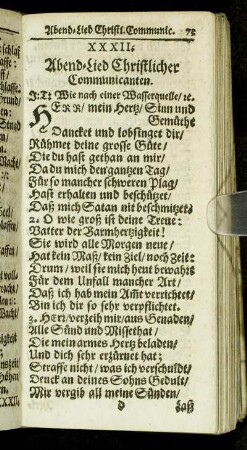 Abend-Lied Christl. Communic. 75
XXXII.
Abend-Lied Christlicher
Communicanten.
J. T: Wie nach einer Wasserquelle/ ꝛc.
HERR/ mein Hertz/ Sinn und
Gemüthe
Dancket und lobsinget dir/
Rühmet deine grosse Güte/
Die du hast gethan an mir/
Da du mich den gantzen Tag/
Für so mancher schweren Plag/
Hast erhalten und beschützet/
Daß mich Satan nit beschmitzet.
2. O wie groß ist deine Treue:
Vatter der Barmhertzigkeit!
Sie wird alle Morgen neue/
Hat kein Maß/ kein Ziel/ noch Zeit:
Drum/ weil sie mich heut bewahrt
Für dem Unfall mancher Art/
Daß ich hab mein Amt verrichtet/
Bin ich dir so sehr verpflichtet.
3. Herr/ verzeih mir/ aus Genaden/
Alle Sünd und Missethat/
Die mein armes Hertz beladen/
Und dich sehr erzürnet hat;
Straffe nicht/ was ich verschuldt/
Denck an deines Sohns Gedult/
Mir vergib all meine Sünden/
d laß